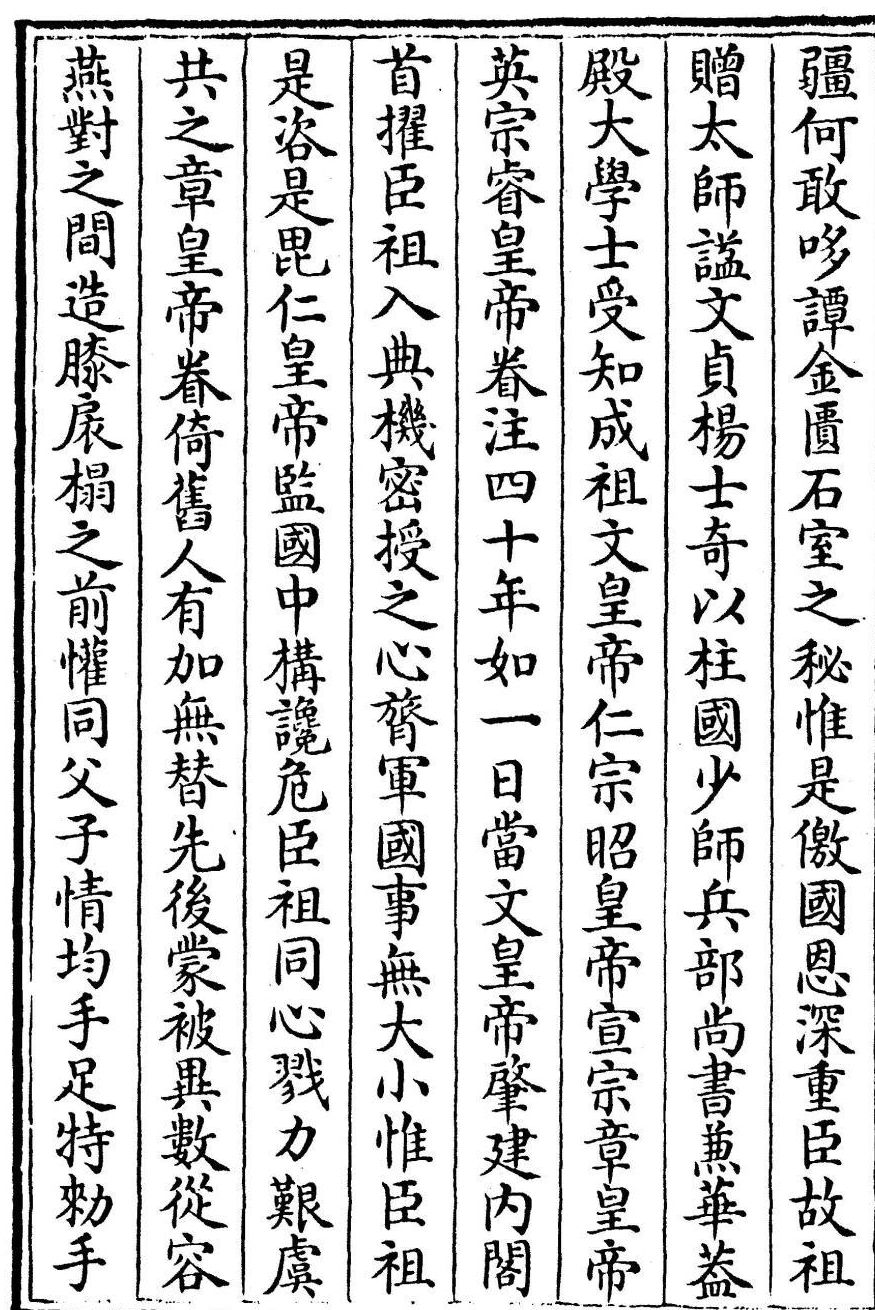 疆何敢哆譚金匱石室之秘惟是儌國恩深重臣故祖
贈太師謚文貞楊士奇以柱國少師兵部尚書蕪華葢
殿大學士受知成祖文皇帝仁宗昭皇帝宣宗章皇帝
英宗睿皇帝眷注四十年如一日當文皇帝肇建内閣
首擢臣祖入典機密授之心膂軍國事無大小惟臣祖
是咨是毘仁皇帝監國中構讒危臣祖同心戮力艱虞
共之章皇帝眷倚舊人有加無替先後蒙被異數從容
燕對之間造膝扆榻之前懽同父子情均手足特勑手